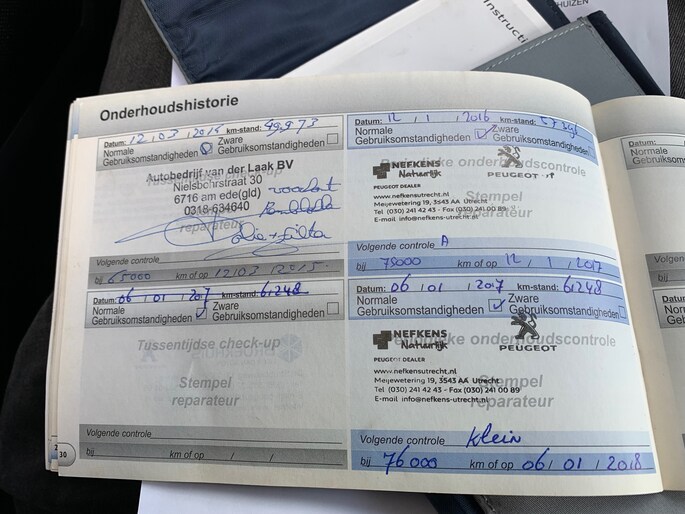 Instructi
HUIZEN
Onderhoudshistorie
Datum: 12 / 03 / 2014 km-stand: 49.973
Normale Gebruiksomstandigheden
Zware Gebruiksomstandigheden
Autobedrijf van der Laak BV
Nielsbohrstraat 30
6716 am ede(gld)
0318-634640
Stempel
reparateur
olie + filter
Volgende controle
bij 65000 km of op 12 / 03 / 2015.
Datum: 12 / 1 / 2016 km-stand:
Normale Gebruiksomstandigheden
Zware Gebruiksomstandigheden
Periodieke onderhoudscontrole
NEFKENS
PEUGEOT
PEUGEOT DEALER
www.nefkensutrecht.nl
Meijewetering 19, 3543 AA Utrecht
Tel. (030) 241 42 43 - Fax (030) 241 00 89
E-mail info@nefkens-utrecht.nl
Stempel
reparateur
Volgende controle A
bij 75000 km of op 12 / 1 / 2017
Datum: 06 / 01 / 2017 km-stand: 61248
Normale Gebruiksomstandigheden
Zware Gebruiksomstandigheden
Tussentijdse check-up
Stempel
reparateur
Volgende controle
bij km of op / /
Datum: 06 / 01 / 2017 km-stand: 61248
Normale Gebruiksomstandigheden
Zware Gebruiksomstandigheden
Periodieke onderhoudscontrole
NEFKENS
Natuurlijk
PEUGEOT
PEUGEOT DEALER
www.nefkensutrecht.nl
Meijewetering 19, 3543 AA Utrecht
Tel. (030) 241 42 43 - Fax (030) 241 00 89
E-mail info@nefkens-utrecht.nl
Stempel
reparateur
Volgende controle Klein
bij 76000 km of op 06 / 01 / 2018
30